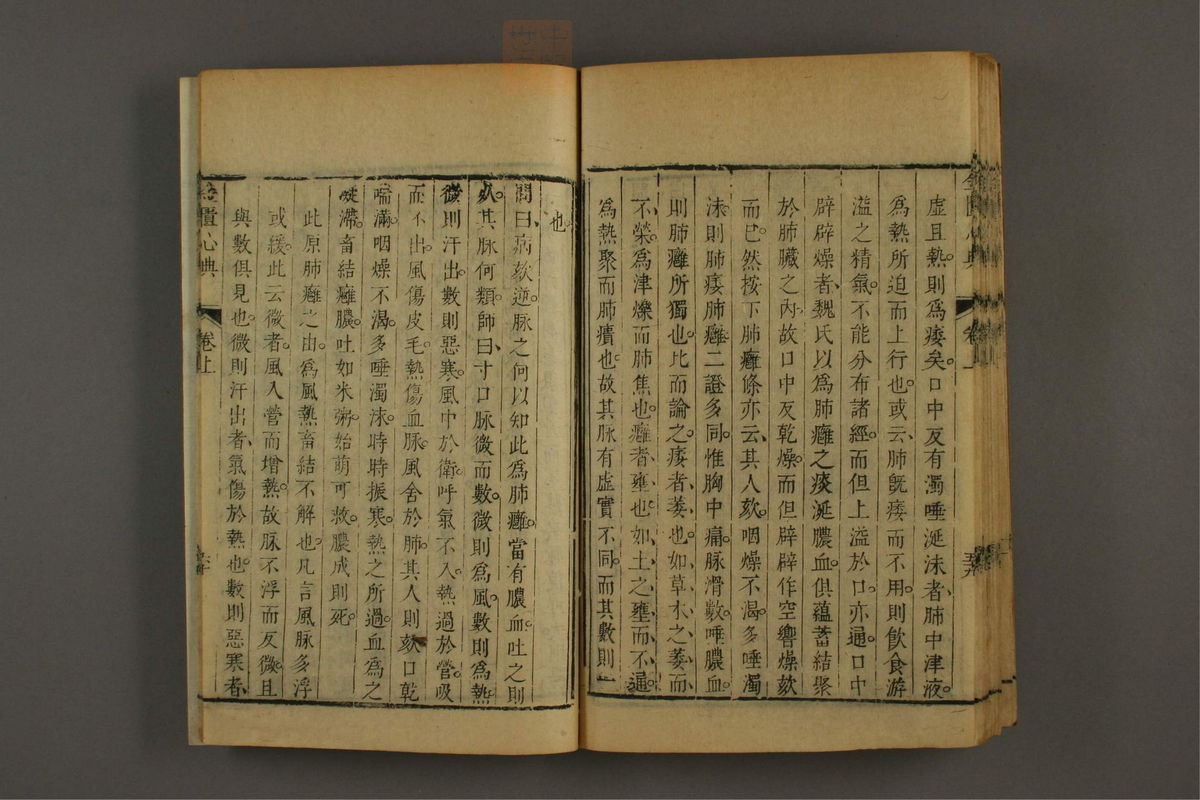 虛且熱則爲痿矣。口中反有濁唾涎沫者、肺中津液。
爲熱所迫而上行也。或云、肺旣痿而不用。則飲食游
溢之精氣。不能分布諸經。而但上溢於口。亦通。口中
辟辟燥者、魏氏以爲肺癰之痰涎膿血。俱蘊蓄結聚
於肺臟之內。故口中反乾燥。而但辟辟作空響燥欬
而已。然按下肺癰條亦云、其人欬。咽燥不渴。多唾濁
沫。則肺痿肺癰二證多同。惟胸中痛。脉滑數。唾膿血。
則肺癰所獨也。比而論之。痿者萎也。如草木之萎而
不榮。爲津爍而肺焦也。癰者、壅也。如土之壅而不通。
爲熱聚而肺㿉也。故其脉有虛實不同。而其數則一
也。
問曰、病欬逆。脉之何以知此爲肺癰。當有膿血吐之則
死。其脉何類。師曰、寸口脉微而數。微則爲風。數則爲熱
微則汗出。數則惡寒。風中於衛。呼氣不入。熱過於營。吸
而不出。風傷皮毛。熱傷血脉。風舍於肺。其人則欬。口乾
喘滿。咽燥不渴。多唾濁沫。時時振寒。熱之所過。血爲之
凝滯。畜結癰膿。吐如米粥。始萌可救。膿成則死。
此原肺癰之由。爲風熱畜結不解也。凡言風脉多浮
或緩。此云微者。風入營而增熱。故脉不浮而反微。且
與數俱見也。微則汗出者、氣傷於熱也。數則惡寒者、
金匱心典
卷上